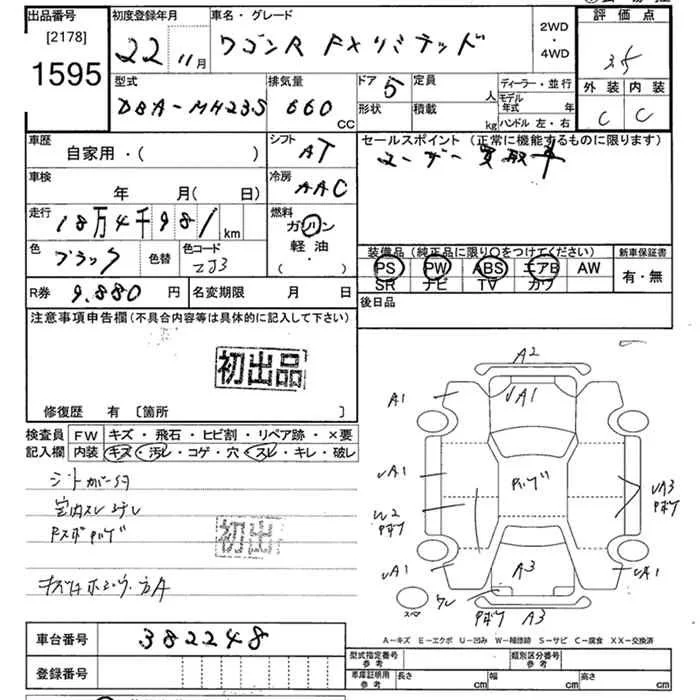 出品番号
[2178]
1595
初度登録年月
22 11月
車名・グレード
ワゴンR FXリミテッド
2WD
・
4WD
評価点
3.5
外装 内装
C C
型式
DBA-MH23S
排気量
660 CC
ドア 5
形状
定員 人
積載 kg
ディーラー・並行
モデル年式 年
ハンドル 左・右
車歴
自家用・( )
シフト
AT
セールスポイント (正常に機能するものに限ります)
ユーザー買取車
車検
年 月( 日)
冷房
AAC
走行
18万4千981 km
燃料
ガソリン
軽油
・
( )
色
ブラック
色替
色コード
ZJ3
装備品(純品に限り○をつけてください)
PS PW ABS エアB AW
SR ナビ TV カワ
新車保証書
有・無
R券 9.880 円
名変期限 月 日
後日品
注意事項申告欄(不具合内容等は具体的に記入して下さい)
初出品
修復歴 有 [箇所 ]
検査員
記入欄
FW キズ・飛石・ヒビ割・リペア跡・×要
内装 キズ・汚レ・コゲ・穴・スレ・キレ・破レ
室内スレ汚レ
初出
A2
A1 UA1
UA1
UA3
Pボケ
W2
Pボケ
UA1
A3
UA1
スペア
Pボケ A3
A-キズ E-エクボ U-凹み W-補修跡 S-サビ C-腐食 XX-交換済
車台番号
382248
登録番号
型式指定番号
参考
類別区分番号
参考
車庫証明用
参考
長さ cm
幅 cm
高さ cm